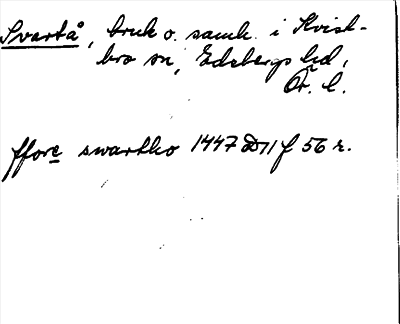 Svartå, bruk o. samh. i Kvist-
bro sn, Edsbergs hd,
Ör. l.
ffore swartho 1447 D 11 f 56 r.